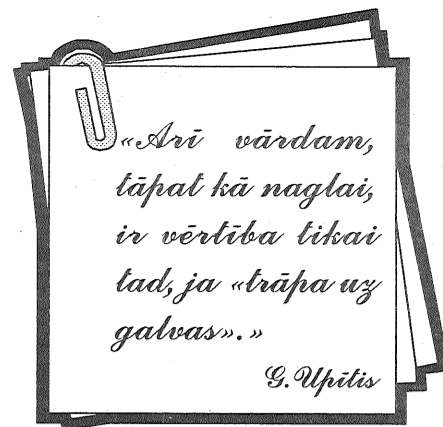 «Arī vārdam,
tāpat kā naglai,
ir vērtība tikai
tad, ja «trāpa uz
galvas».»
G. Upītis